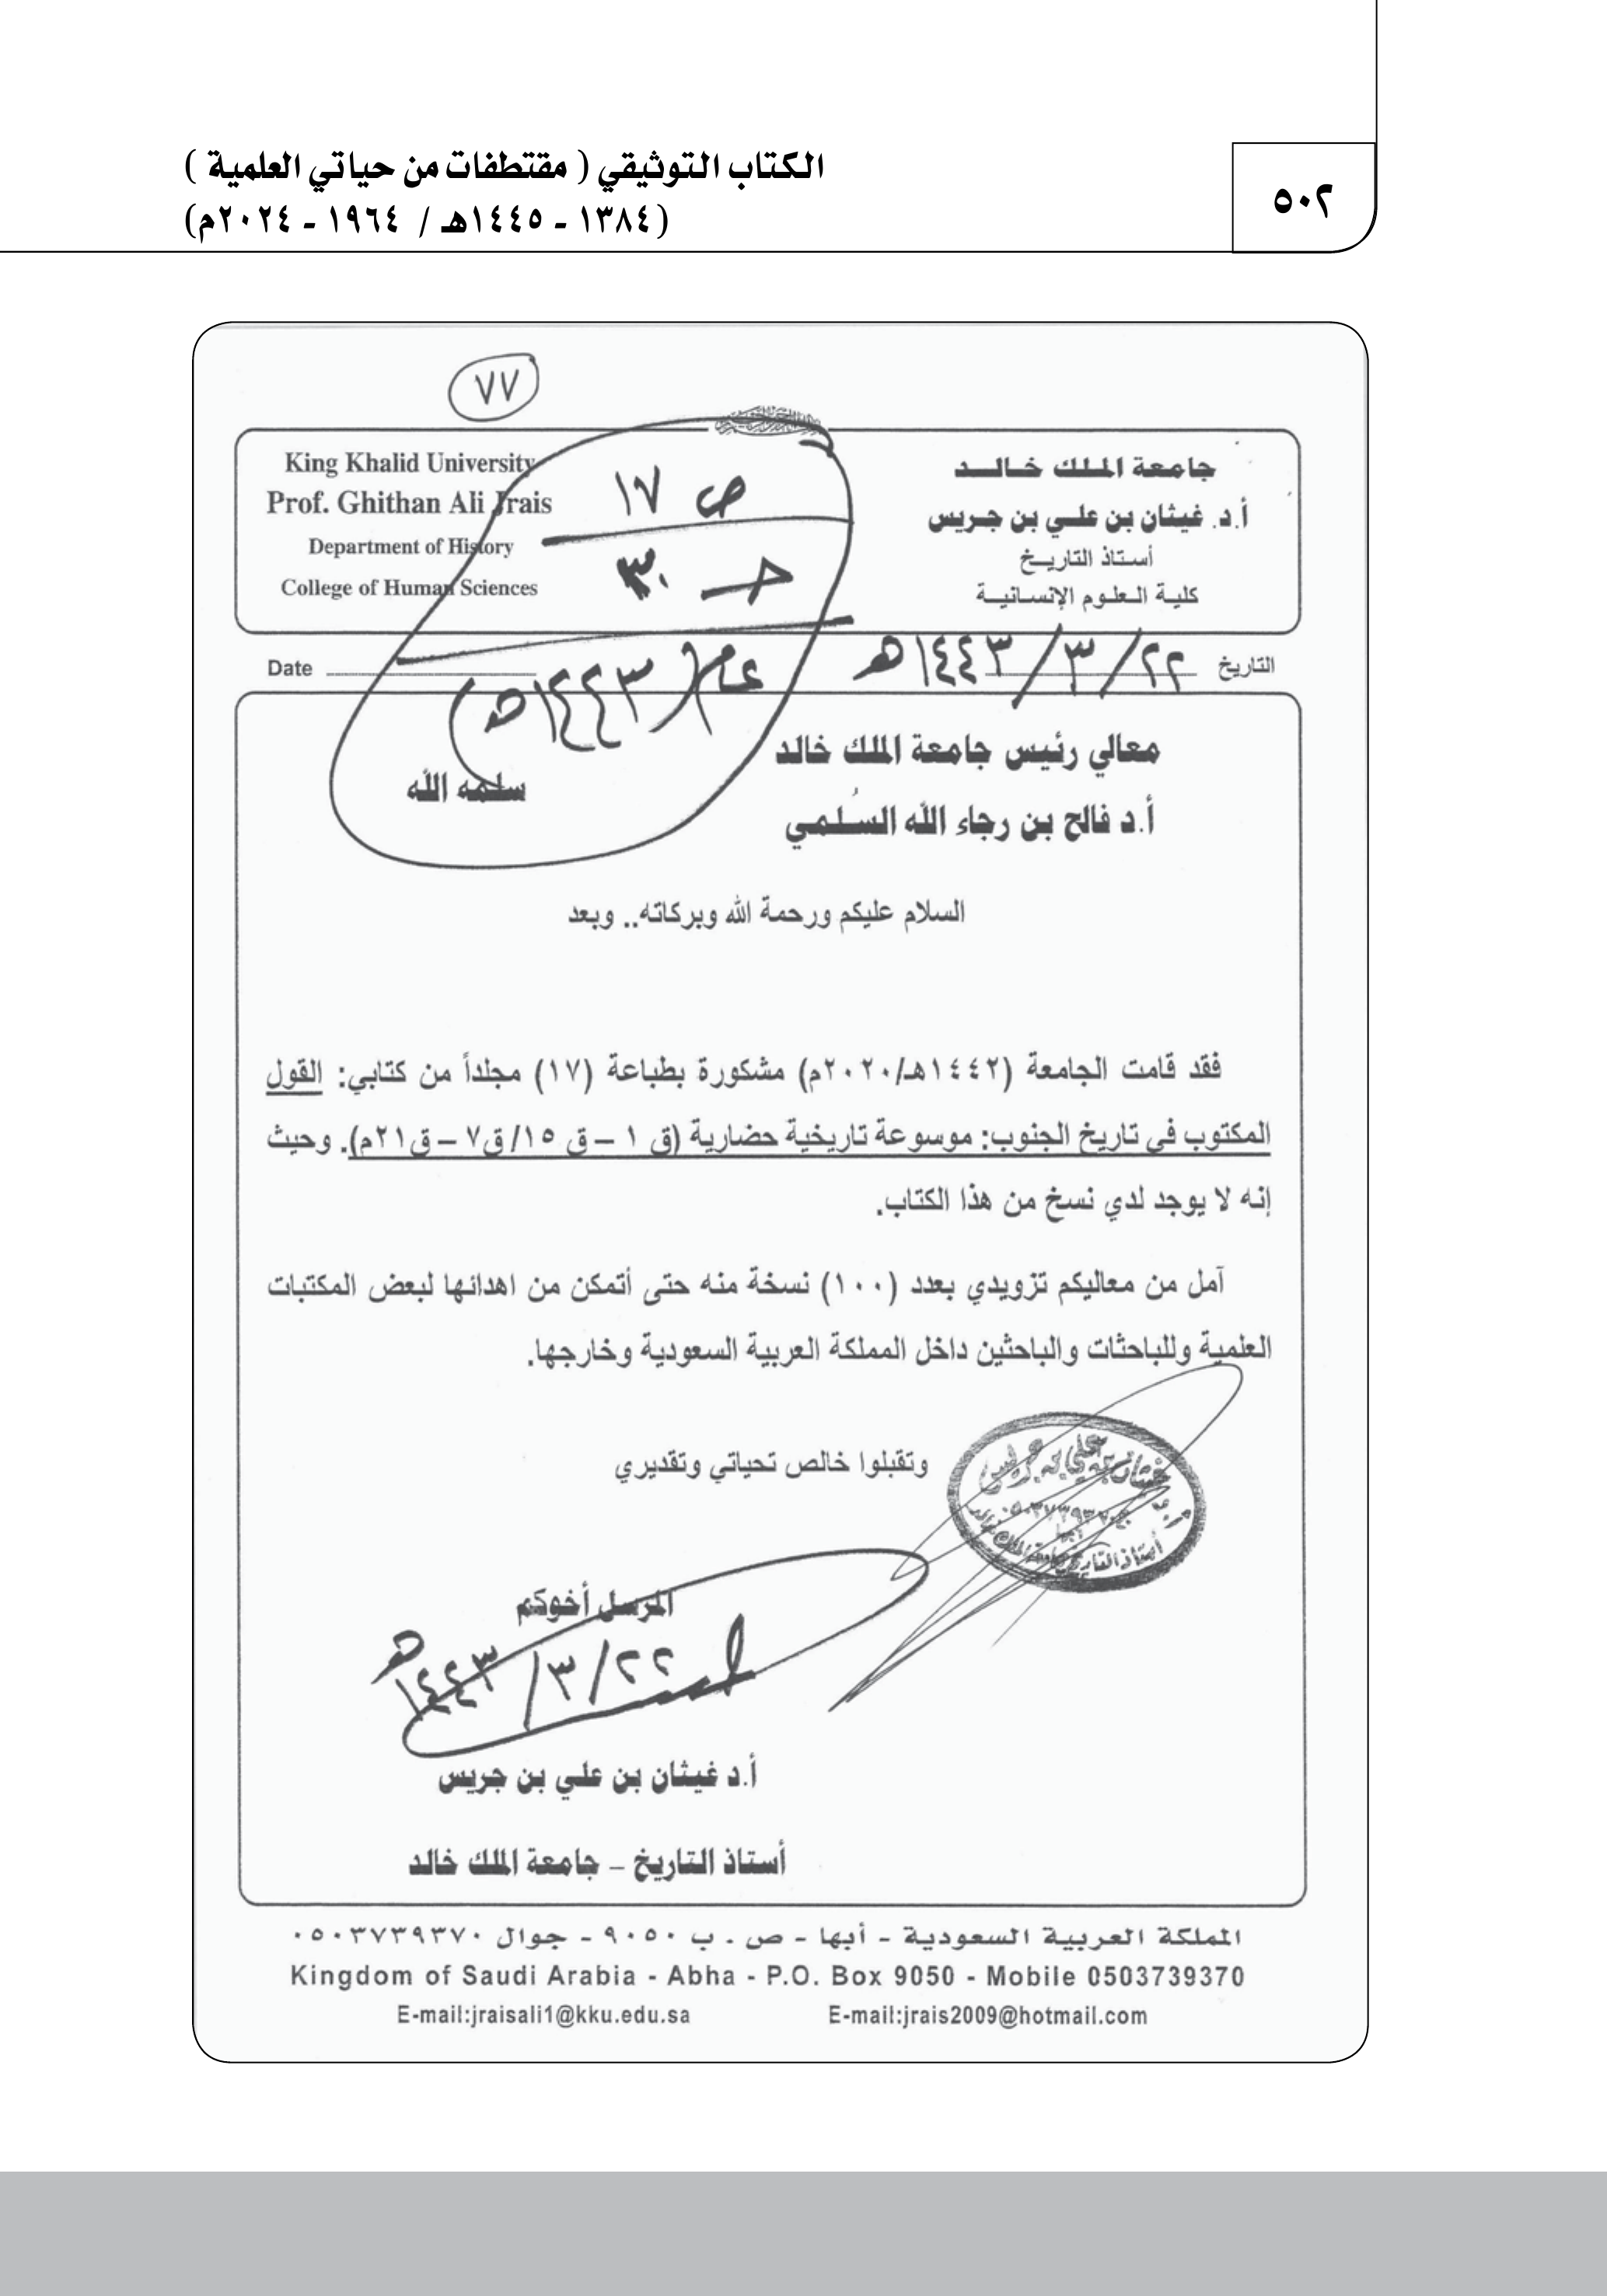 ٥٠٢
الكتاب التوثيقي ( مقتطفات من حياتي العلمية )
(١٣٨٤ - ١٤٤٥هـ / ١٩٦٤ - ٢٠٢٤م)
٧٧
جامعة الملك خالد
أ.د. غيثان بن علي بن جريس
أستاذ التاريخ
كلية العلوم الإنسانية
King Khalid University
Prof. Ghithan Ali Jrais
Department of History
College of Human Sciences
ص ١٧
عام (١٤٤٣هـ)
التاريخ ٢٢/٣/١٤٤٣هـ
Date
معالي رئيس جامعة الملك خالد
أ.د فالح بن رجاء الله السُلمي
سلمه الله
السلام عليكم ورحمة الله وبركاته.. وبعد
فقد قامت الجامعة (١٤٤٢هـ/٢٠٢٠م) مشكورة بطباعة (١٧) مجلداً من كتابي: القول
المكتوب في تاريخ الجنوب: موسوعة تاريخية حضارية (ق ١ – ق ١٥/ ق٧ – ق٢١م). وحيث
إنه لا يوجد لدي نسخ من هذا الكتاب.
آمل من معاليكم تزويدي بعدد (١٠٠) نسخة منه حتى أتمكن من اهدائها لبعض المكتبات
العلمية وللباحثات والباحثين داخل المملكة العربية السعودية وخارجها.
وتقبلوا خالص تحياتي وتقديري
غيثان بن علي بن جريس
أستاذ التاريخ بجامعة الملك خالد
المرسل أخوكم
٢٢/٣/١٤٤٣هـ
أ.د غيثان بن علي بن جريس
أستاذ التاريخ – جامعة الملك خالد
المملكة العربية السعودية - أبها - ص . ب ٩٠٥٠ - جوال ٠٥٠٣٧٣٩٣٧٠
Kingdom of Saudi Arabia - Abha - P.O. Box 9050 - Mobile 0503739370
E-mail:jraisali1@kku.edu.sa E-mail:jrais2009@hotmail.com